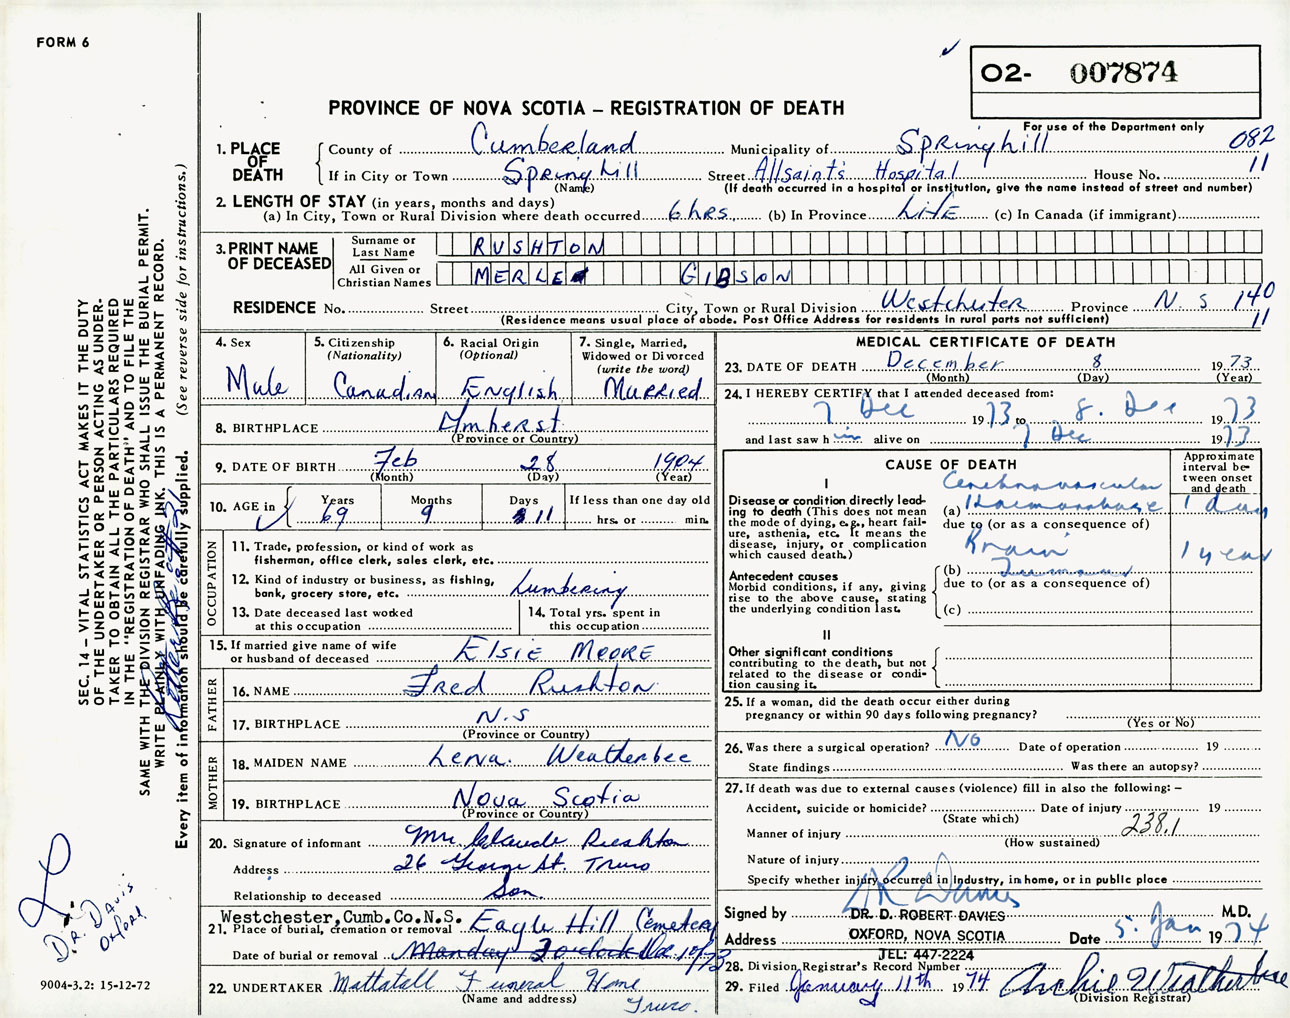 FORM 6
02- 007874
PROVINCE OF NOVA SCOTIA – REGISTRATION OF DEATH
For use of the Department only
1. PLACE OF DEATH
County of Cumberland Municipality of Springhill 082
If in City or Town Springhill Street Allsaint's Hospital House No. 11
(Name) (If death occurred in a hospital or institution, give the name instead of street and number)
2. LENGTH OF STAY (in years, months and days)
(a) In City, Town or Rural Division where death occurred 6 hrs. (b) In Province Life (c) In Canada (if immigrant)
3. PRINT NAME OF DECEASED
Surname or Last Name RUSHTON
All Given or Christian Names MERLE GIBSON
RESIDENCE No. Street City, Town or Rural Division Westchester Province N.S 140
(Residence means usual place of abode. Post Office Address for residents in rural parts not sufficient) 11
4. Sex Male
5. Citizenship (Nationality) Canadian
6. Racial Origin (Optional) English
7. Single, Married, Widowed or Divorced (write the word) Married
8. BIRTHPLACE Amherst
(Province or Country)
9. DATE OF BIRTH Feb 28 1904
(Month) (Day) (Year)
10. AGE in Years 69 Months 9 Days 11 If less than one day old hrs. or min.
OCCUPATION
11. Trade, profession, or kind of work as fisherman, office clerk, sales clerk, etc.
12. Kind of industry or business, as fishing, bank, grocery store, etc. Lumbering
13. Date deceased last worked at this occupation
14. Total yrs. spent in this occupation
15. If married give name of wife or husband of deceased Elsie Moore
FATHER
16. NAME Fred Rushton
17. BIRTHPLACE N.S
(Province or Country)
MOTHER
18. MAIDEN NAME Lena Weatherbee
19. BIRTHPLACE Nova Scotia
(Province or Country)
20. Signature of informant Mr. Claude Rushton
Address 26 George St. Truro
Relationship to deceased Son
Westchester, Cumb.Co.N.S. Eagle Hill Cemetery
21. Place of burial, cremation or removal
Date of burial or removal Monday 2 o'clock Dec 10/73
22. UNDERTAKER Mattatall Funeral Home
(Name and address) Truro.
MEDICAL CERTIFICATE OF DEATH
23. DATE OF DEATH December 8 1973
(Month) (Day) (Year)
24. I HEREBY CERTIFY that I attended deceased from:
7 Dec 1973 to 8. Dec 1973
and last saw him alive on 7 Dec 1973
CAUSE OF DEATH
Approximate interval between onset and death
I
Disease or condition directly leading to death (This does not mean the mode of dying, e.g., heart failure, asthenia, etc. It means the disease, injury, or complication which caused death.)
Cerebrovascular
(a) Haemorrhage 1 day
due to (or as a consequence of)
Brain 1 year
(b)
Antecedent causes
Morbid conditions, if any, giving rise to the above cause, stating the underlying condition last.
due to (or as a consequence of)
(c)
II
Other significant conditions contributing to the death, but not related to the disease or condition causing it.
25. If a woman, did the death occur either during pregnancy or within 90 days following pregnancy?
(Yes or No)
26. Was there a surgical operation? No Date of operation 19
State findings Was there an autopsy?
27. If death was due to external causes (violence) fill in also the following: –
Accident, suicide or homicide? Date of injury 19
(State which)
Manner of injury 238.1
(How sustained)
Nature of injury
Specify whether injury occurred in Industry, in home, or in public place
Signed by DR. D. ROBERT DAVIES M.D.
Address OXFORD, NOVA SCOTIA Date 5. Jan 1974
TEL: 447-2224
28. Division Registrar's Record Number
29. Filed January 11th 1974 Archie Weatherbee
(Division Registrar)
SEC. 14 – VITAL STATISTICS ACT MAKES IT THE DUTY
OF THE UNDERTAKER OR PERSON ACTING AS UNDER-
TAKER TO OBTAIN ALL THE PARTICULARS REQUIRED
IN THE "REGISTRATION OF DEATH" AND TO FILE THE
SAME WITH THE DIVISION REGISTRAR WHO SHALL ISSUE THE BURIAL PERMIT.
WRITE PLAINLY WITH UNFADING INK. THIS IS A PERMANENT RECORD.
Every item of information should be carefully supplied. (See reverse side for instructions.)
Dr. Davis
Oxford
9004-3.2: 15-12-72